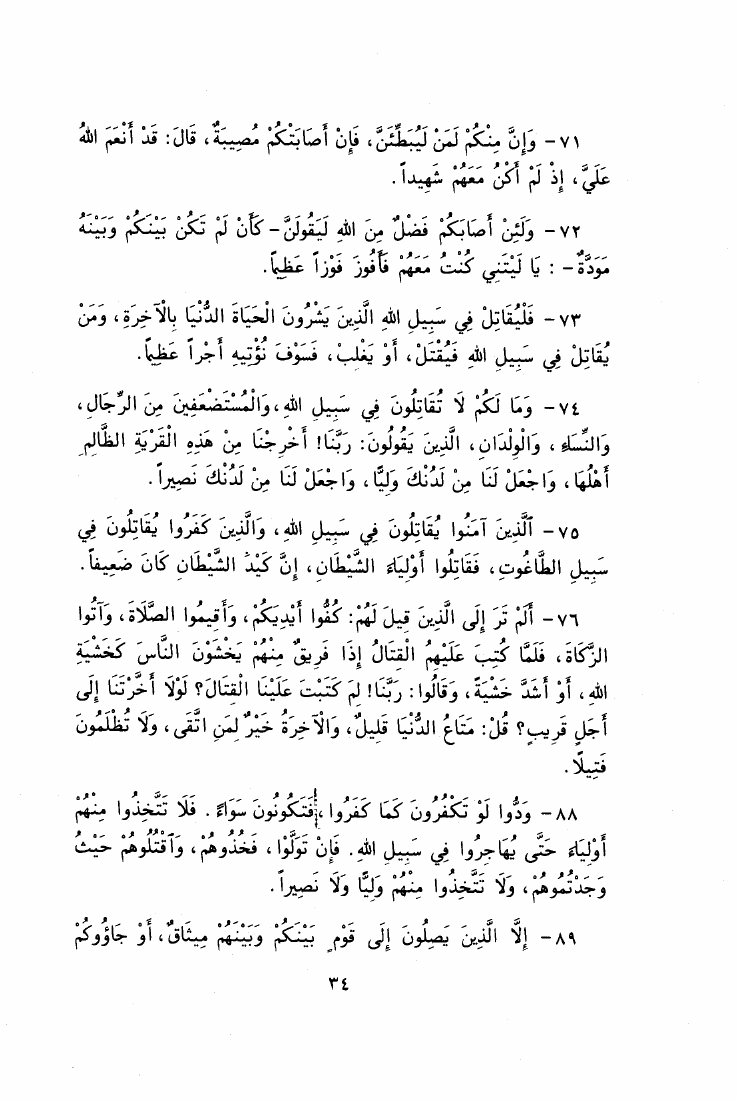 ٧١ - وَإِنَّ مِنْكُمْ لَمَنْ لَيُبَطِّئَنَّ، فَإِنْ أَصَابَتْكُمْ مُصِيبَةٌ، قَالَ: قَدْ أَنْعَمَ اللهُ
عَلَيَّ، إِذْ لَمْ أَكُنْ مَعَهُمْ شَهِيداً.
٧٢ - وَلَئِنْ أَصَابَكُمْ فَضْلٌ مِنَ اللهِ لَيَقُولَنَّ - كَأَنْ لَمْ تَكُنْ بَيْنَكُمْ وَبَيْنَهُ
مَوَدَّةٌ - : يَا لَيْتَنِي كُنْتُ مَعَهُمْ فَأَفُوزَ فَوْزاً عَظِيماً.
٧٣ - فَلْيُقَاتِلْ فِي سَبِيلِ اللهِ الَّذِينَ يَشْرُونَ الْحَيَاةَ الدُّنْيَا بِالْآخِرَةِ، وَمَنْ
يُقَاتِلْ فِي سَبِيلِ اللهِ فَيُقْتَلْ، أَوْ يَغْلِبْ، فَسَوْفَ نُؤْتِيهِ أَجْراً عَظِيماً.
٧٤ - وَمَا لَكُمْ لَا تُقَاتِلُونَ فِي سَبِيلِ اللهِ، وَالْمُسْتَضْعَفِينَ مِنَ الرِّجَالِ،
وَالنِّسَاءِ، وَالْوِلْدَانِ، الَّذِينَ يَقُولُونَ: رَبَّنَا! أَخْرِجْنَا مِنْ هَذِهِ الْقَرْيَةِ الظَّالِمِ
أَهْلُهَا، وَاجْعَلْ لَنَا مِنْ لَدُنْكَ وَلِيًّا، وَاجْعَلْ لَنَا مِنْ لَدُنْكَ نَصِيراً.
٧٥ - اَلَّذِينَ آمَنُوا يُقَاتِلُونَ فِي سَبِيلِ اللهِ، وَالَّذِينَ كَفَرُوا يُقَاتِلُونَ فِي
سَبِيلِ الطَّاغُوتِ، فَقَاتِلُوا أَوْلِيَاءَ الشَّيْطَانِ، إِنَّ كَيْدَ الشَّيْطَانِ كَانَ ضَعِيفاً.
٧٦ - أَلَمْ تَرَ إِلَى الَّذِينَ قِيلَ لَهُمْ: كُفُّوا أَيْدِيَكُمْ، وَأَقِيمُوا الصَّلَاةَ، وَآتُوا
الزَّكَاةَ، فَلَمَّا كُتِبَ عَلَيْهِمُ الْقِتَالُ إِذَا فَرِيقٌ مِنْهُمْ يَخْشَوْنَ النَّاسَ كَخَشْيَةِ
اللهِ، أَوْ أَشَدَّ خَشْيَةً، وَقَالُوا: رَبَّنَا! لِمَ كَتَبْتَ عَلَيْنَا الْقِتَالَ؟ لَوْلَا أَخَّرْتَنَا إِلَى
أَجَلٍ قَرِيبٍ؟ قُلْ: مَتَاعُ الدُّنْيَا قَلِيلٌ، وَالْآخِرَةُ خَيْرٌ لِمَنِ اتَّقَى، وَلَا تُظْلَمُونَ
فَتِيلًا.
٨٨ - وَدُّوا لَوْ تَكْفُرُونَ كَمَا كَفَرُوا، فَتَكُونُونَ سَوَاءً. فَلَا تَتَّخِذُوا مِنْهُمْ
أَوْلِيَاءَ حَتَّى يُهَاجِرُوا فِي سَبِيلِ اللهِ. فَإِنْ تَوَلَّوْا، فَخُذُوهُمْ، وَاقْتُلُوهُمْ حَيْثُ
وَجَدْتُمُوهُمْ، وَلَا تَتَّخِذُوا مِنْهُمْ وَلِيًّا وَلَا نَصِيراً.
٨٩ - إِلَّا الَّذِينَ يَصِلُونَ إِلَى قَوْمٍ بَيْنَكُمْ وَبَيْنَهُمْ مِيثَاقٌ، أَوْ جَاؤُوكُمْ
٣٤